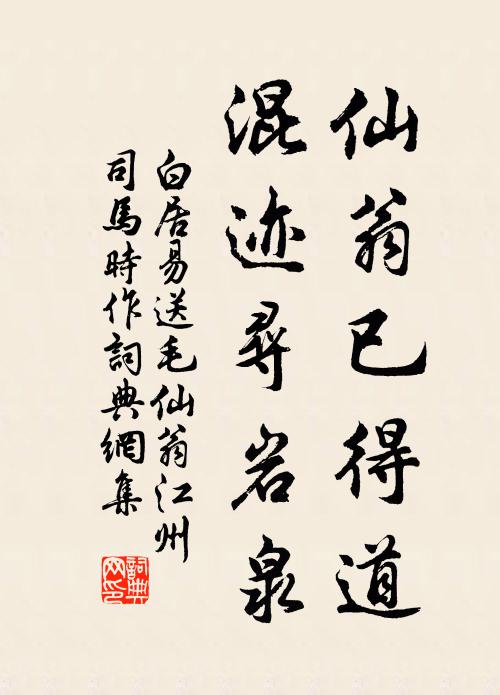 仙翁已得道
混迹尋岩泉
白居易送毛仙翁江州
司馬時作詞典網集
詞典
网印